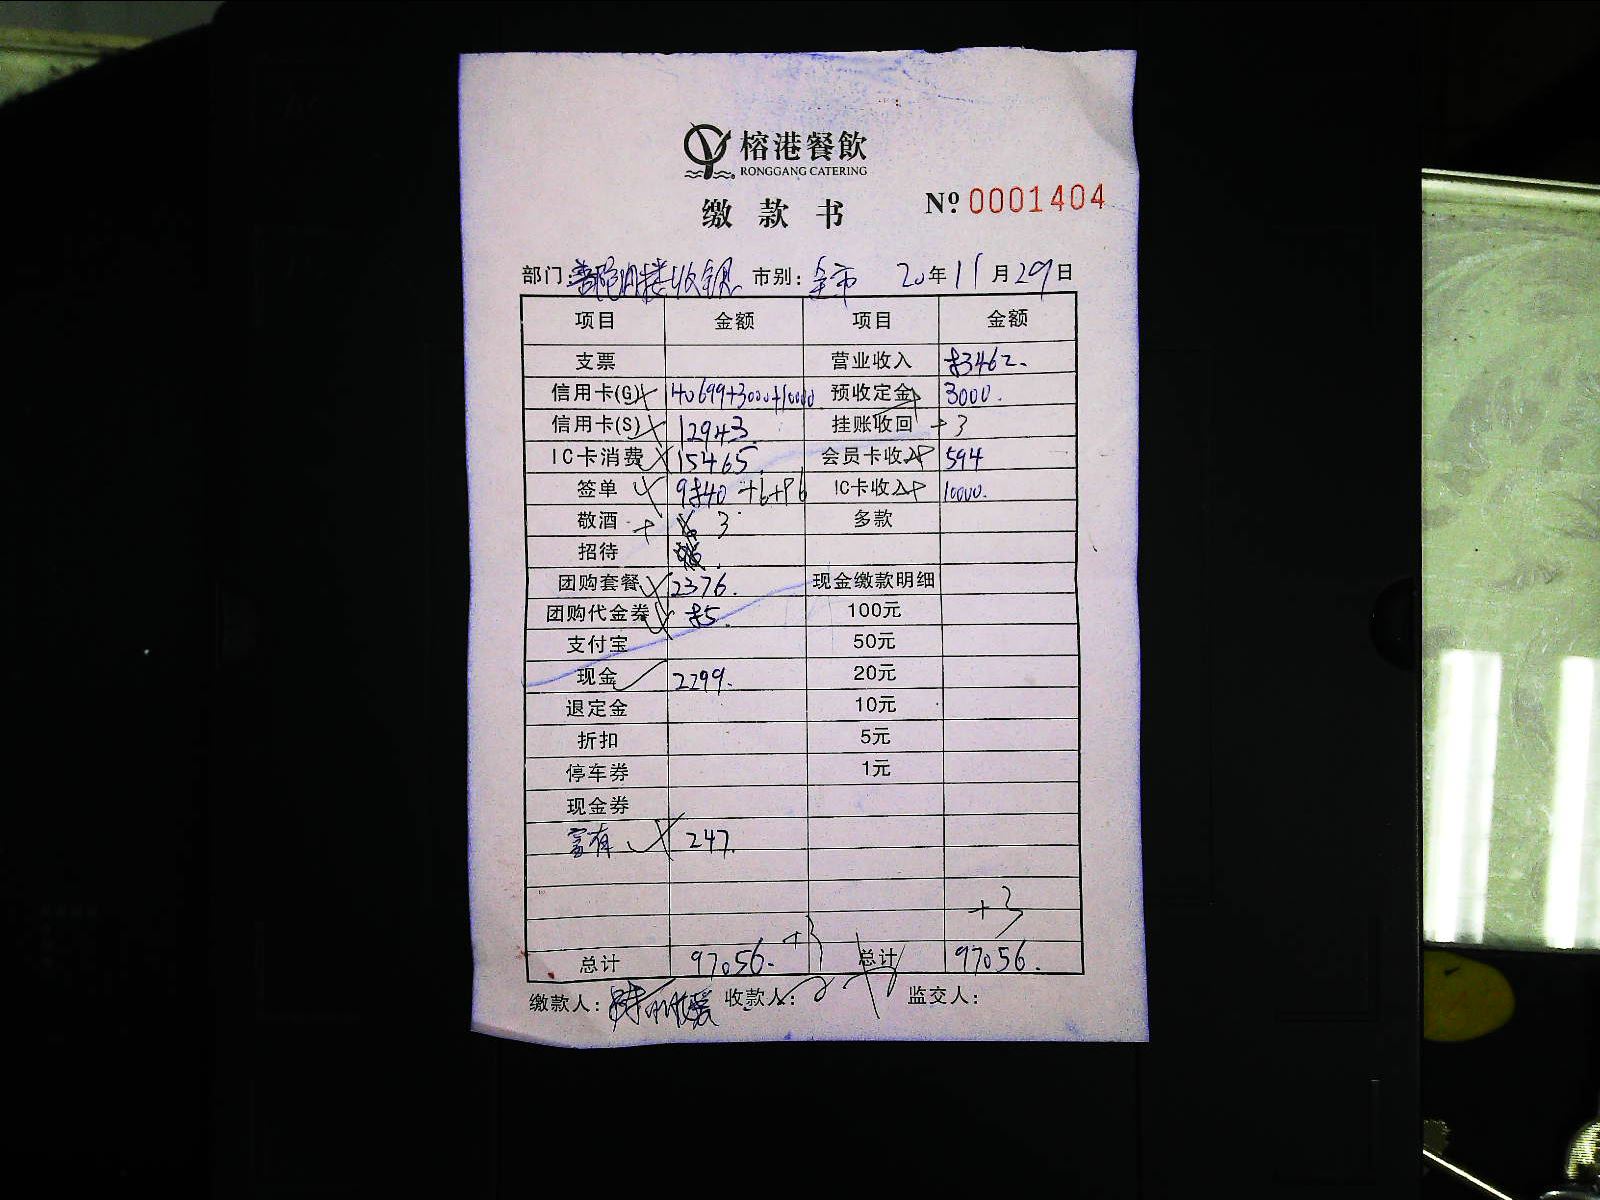 榕港餐飲
RONGGANG CATERING
缴款书
Nº 0001404
部门: 收银 市别: 全市 20年11月29日
项目 金额 项目 金额
支票 营业收入 83462.
信用卡(G) 40699+3000+10000 预收定金 3000.
信用卡(S) 12943. 挂账收回 +3
IC卡消费 15465. 会员卡收入 594
签单 9840 +6+96 IC卡收入 10000.
敬酒 + 3 多款
招待
团购套餐 2376. 现金缴款明细
团购代金券 85. 100元
支付宝 50元
现金 2299. 20元
退定金 10元
折扣 5元
停车券 1元
现金券
富有 247.
+3
总计 97056. +3 总计 97056.
缴款人: 收款人: 监交人: